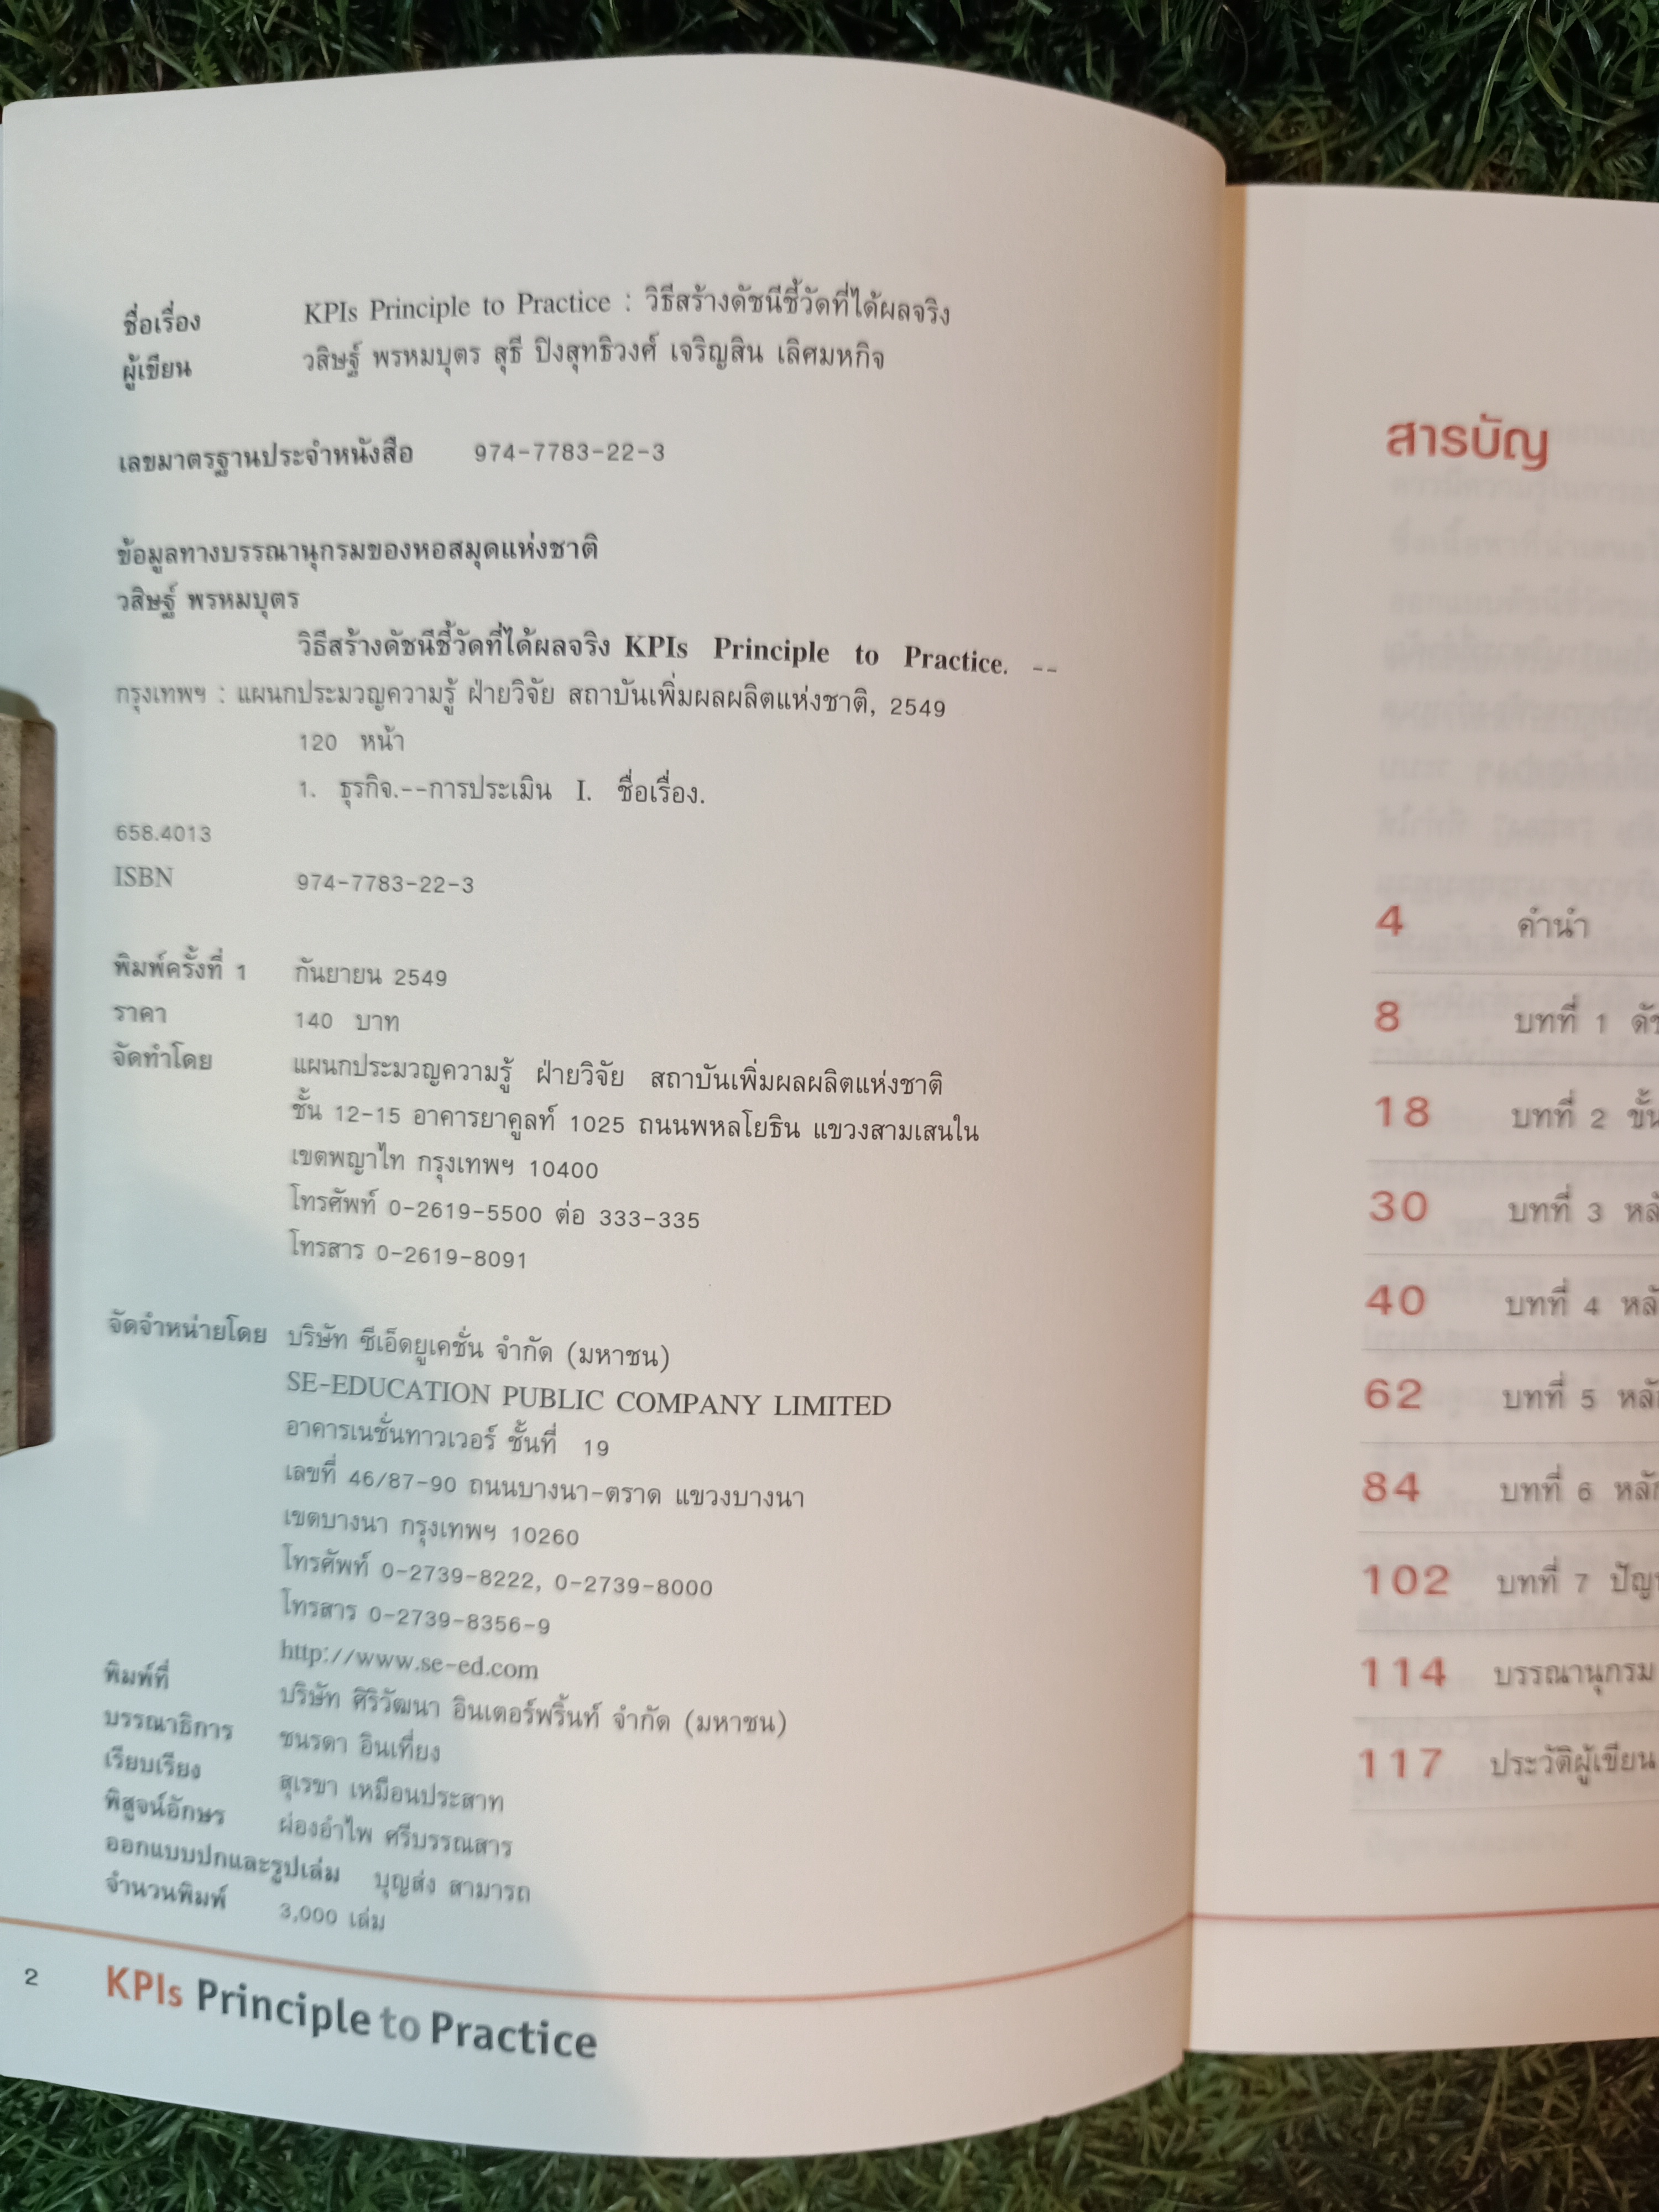 ชื่อเรื่อง KPIs Principle to Practice : วิธีสร้างดัชนีชี้วัดที่ได้ผลจริง
ผู้เขียน วสิษฐ์ พรหมบุตร สุธี ปิงสุทธิวงศ์ เจริญสิน เลิศมหกิจ
เลขมาตรฐานประจำหนังสือ 974-7783-22-3
ข้อมูลทางบรรณานุกรมของหอสมุดแห่งชาติ
วสิษฐ์ พรหมบุตร
วิธีสร้างดัชนีชี้วัดที่ได้ผลจริง KPIs Principle to Practice. --
กรุงเทพฯ : แผนกประมวญความรู้ ฝ่ายวิจัย สถาบันเพิ่มผลผลิตแห่งชาติ, 2549
120 หน้า
1. ธุรกิจ.--การประเมิน I. ชื่อเรื่อง.
658.4013
ISBN 974-7783-22-3
พิมพ์ครั้งที่ 1 กันยายน 2549
ราคา 140 บาท
จัดทำโดย แผนกประมวญความรู้ ฝ่ายวิจัย สถาบันเพิ่มผลผลิตแห่งชาติ
ชั้น 12-15 อาคารยาคูลท์ 1025 ถนนพหลโยธิน แขวงสามเสนใน
เขตพญาไท กรุงเทพฯ 10400
โทรศัพท์ 0-2619-5500 ต่อ 333-335
โทรสาร 0-2619-8091
จัดจำหน่ายโดย บริษัท ซีเอ็ดยูเคชั่น จำกัด (มหาชน)
SE-EDUCATION PUBLIC COMPANY LIMITED
อาคารเนชั่นทาวเวอร์ ชั้นที่ 19
เลขที่ 46/87-90 ถนนบางนา-ตราด แขวงบางนา
เขตบางนา กรุงเทพฯ 10260
โทรศัพท์ 0-2739-8222, 0-2739-8000
โทรสาร 0-2739-8356-9
http://www.se-ed.com
พิมพ์ที่ บริษัท ศิริวัฒนา อินเตอร์พริ้นท์ จำกัด (มหาชน)
บรรณาธิการ ชนรดา อินเที่ยง
เรียบเรียง สุเรขา เหมือนประสาท
พิสูจน์อักษร ผ่องอำไพ ศรีบรรณสาร
ออกแบบปกและรูปเล่ม บุญส่ง สามารถ
จำนวนพิมพ์ 3,000 เล่ม
2 KPIs Principle to Practice
สารบัญ
4 คำนำ
8 บทที่ 1
18 บทที่ 2
30 บทที่ 3
40 บทที่ 4
62 บทที่ 5
84 บทที่ 6
102 บทที่ 7
114 บรรณานุกรม
117 ประวัติผู้เขียน